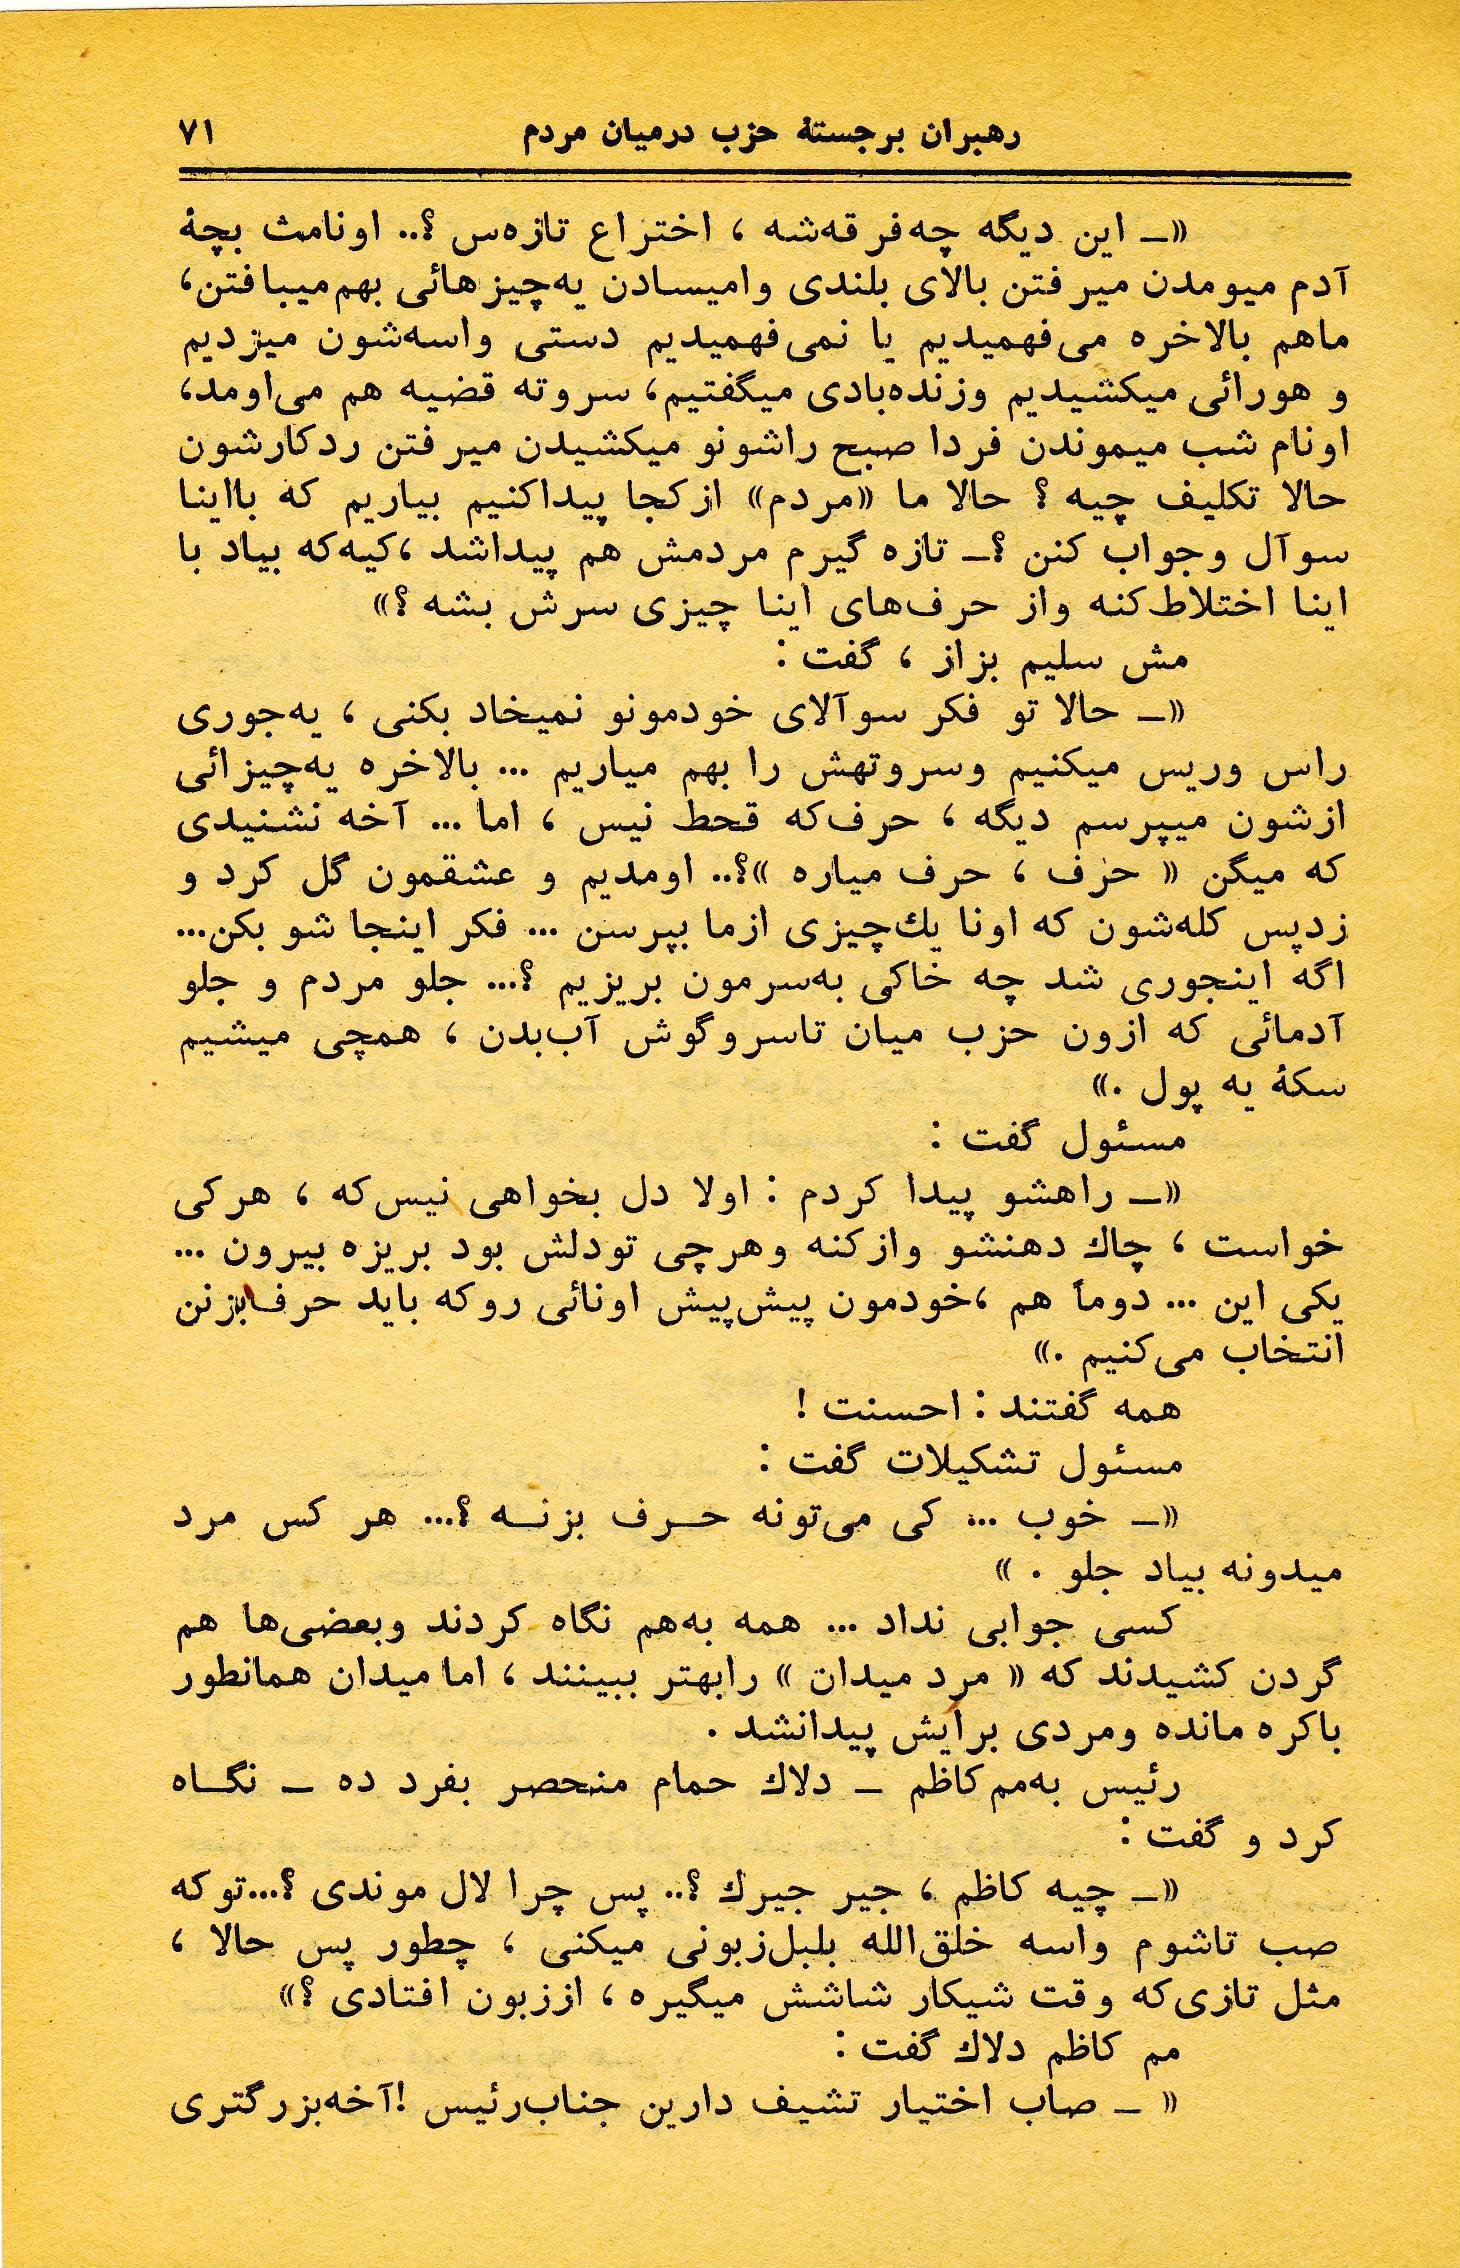 رهبران برجستهٔ حزب درمیان مردم ۷۱
«ـ این دیگه چه‌فرقه‌شه ، اختراع تازه‌س ؟.. اونامث بچهٔ
آدم میومدن میرفتن بالای بلندی وامیسادن یه‌چیزهائی بهم‌میبافتن،
ماهم بالاخره می‌فهمیدیم یا نمی‌فهمیدیم دستی واسه‌شون میزدیم
و هورائی میکشیدیم وزنده‌بادی میگفتیم، سروته قضیه هم می‌اومد،
اونام شب میموندن فردا صبح راشونو میکشیدن میرفتن ردکارشون
حالا تکلیف چیه ؟ حالا ما «مردم» ازکجا پیداکنیم بیاریم که بااینا
سوآل وجواب کنن ؟ـ تازه گیرم مردمش هم پیداشد ،کیه‌که بیاد با
اینا اختلاط‌کنه واز حرف‌های اینا چیزی سرش بشه ؟»
مش سلیم بزاز ، گفت :
«ـ حالا تو فکر سوآلای خودمونو نمیخاد بکنی ، یه‌جوری
راس وریس میکنیم وسروتهش را بهم میاریم ... بالاخره یه‌چیزائی
ازشون میپرسم دیگه ، حرف‌که قحط نیس ، اما ... آخه نشنیدی
که میگن « حزف ، حرف میاره »؟.. اومدیم و عشقمون گل کرد و
زدپس کله‌شون که اونا یك‌چیزی ازما بپرسن ... فکر اینجا شو بکن...
اگه اینجوری شد چه خاکی به‌سرمون بریزیم ؟... جلو مردم و جلو
آدمائی که ازون حزب میان تاسروگوش آب‌بدن ، همچی میشیم
سکهٔ یه پول .»
مسئول گفت :
«ـ راهشو پیدا کردم : اولا دل بخواهی نیس‌که ، هرکی
خواست ، چاك دهنشو وازکنه وهرچی تودلش بود بریزه بیرون ...
یکی این ... دوماً هم ،خودمون پیش‌پیش اونائی روکه باید حرف‌بزنن
انتخاب می‌کنیم .»
همه گفتند : احسنت !
مسئول تشکیلات گفت :
«ـ خوب ... کی می‌تونه حرف بزنه ؟... هر کس مرد
میدونه بیاد جلو . »
کسی جوابی نداد ... همه به‌هم نگاه کردند وبعضی‌ها هم
گردن کشیدند که « مرد میدان » رابهتر ببینند ، اما میدان همانطور
باکره مانده ومردی برایش پیدانشد .
رئیس به‌مم‌کاظم ـ دلاك حمام منحصر بفرد ده ـ نگاه
کرد و گفت :
«ـ چیه کاظم ، جیر جیرك ؟.. پس چرا لال موندی ؟...توکه
صب تاشوم واسه خلق‌الله بلبل‌زبونی میکنی ، چطور پس حالا ،
مثل تازی‌که وقت شیکار شاشش میگیره ، اززبون افتادی ؟»
مم کاظم دلاك گفت :
« ـ صاب اختیار تشیف دارین جناب‌رئیس !آخه‌بزرگتری